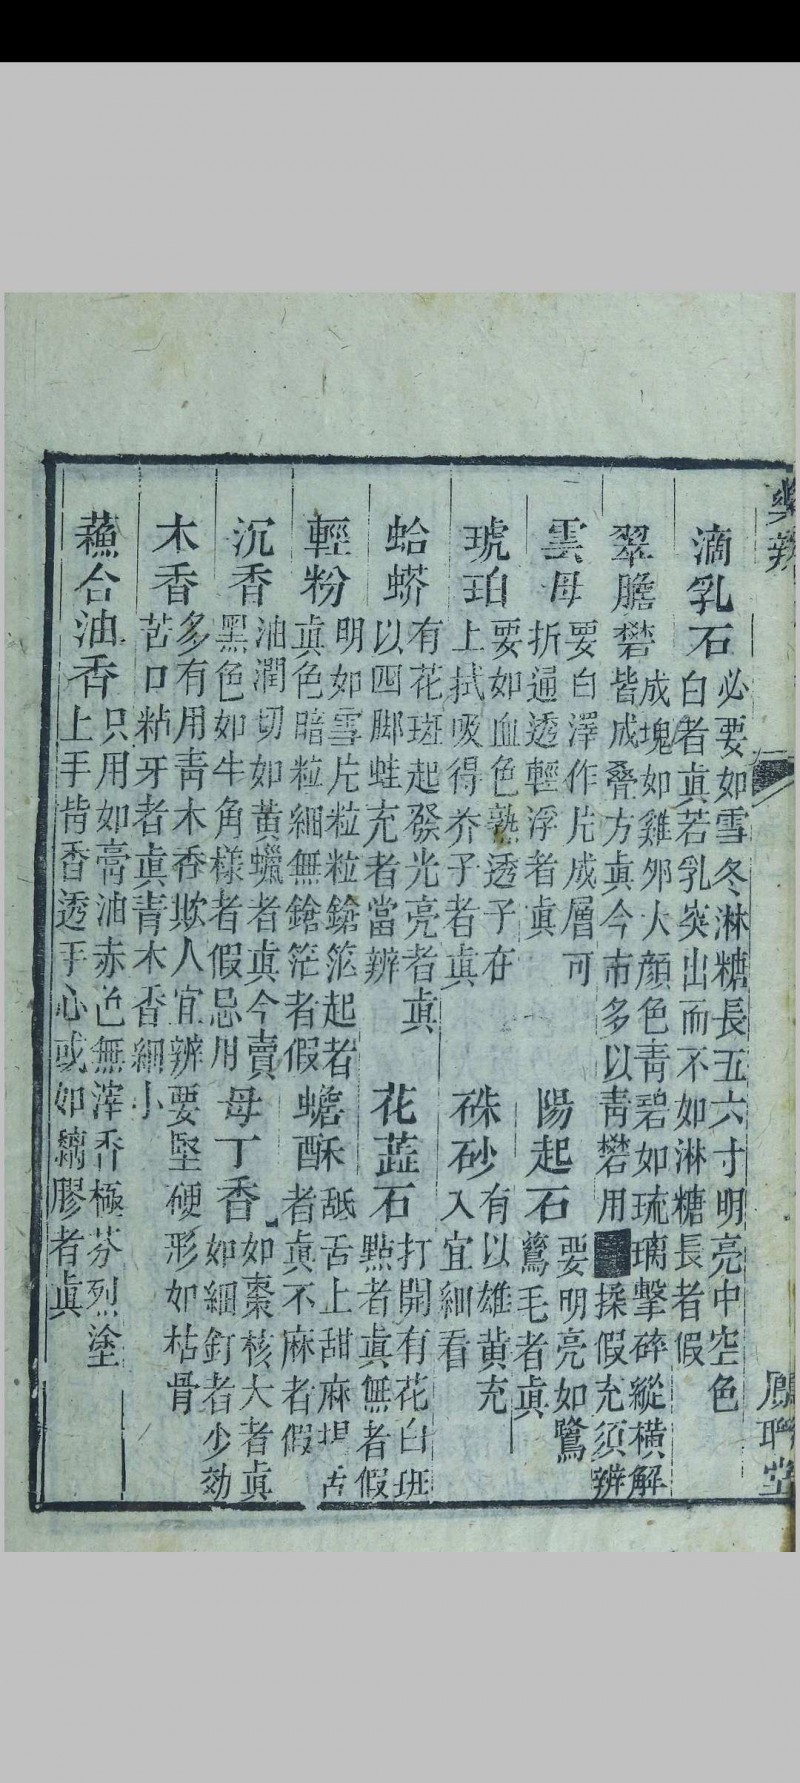 藥辨
滴乳石
必要如雪冬淋糖長五六寸明亮中空色
白者眞若乳突出而不如淋糖長者假
翠膽礬
成塊如雞卵大顏色靑碧如琉璃擊碎縱橫解
皆成叠方眞今市多以靑礬用
揉假充須辨
雲母
要白澤作片成層可
折通透輕浮者眞
陽起石
要明亮如鷺
鷥毛者眞
琥珀
要如血色熟透子在
上拭吸得芥子者眞
硃砂
有以雄黃充
入宜細看
蛤蟒
有花斑起發光亮者眞
以四脚蛙充者當辨
花蕋石
打開有花白班
點者眞無者假
輕粉
明如雪片粒粒鎗范起者
眞色暗粒細無鎗茫者假
蟾酥
舐舌上甜麻
舌
者眞不麻者假
沉香
油潤切如黃蠟者眞今賣
黑色如牛角樣者假忌用
母丁香
如棗核大者眞
如細釘者少効
木香
多有用靑木香欺人宜辨要堅硬形如枯骨
苦口粘牙者眞靑木香細小
蘓合油香
只用如膏油赤色無滓香極芬烈塗
上手背香透手心或如黐膠者眞
鳳聯堂